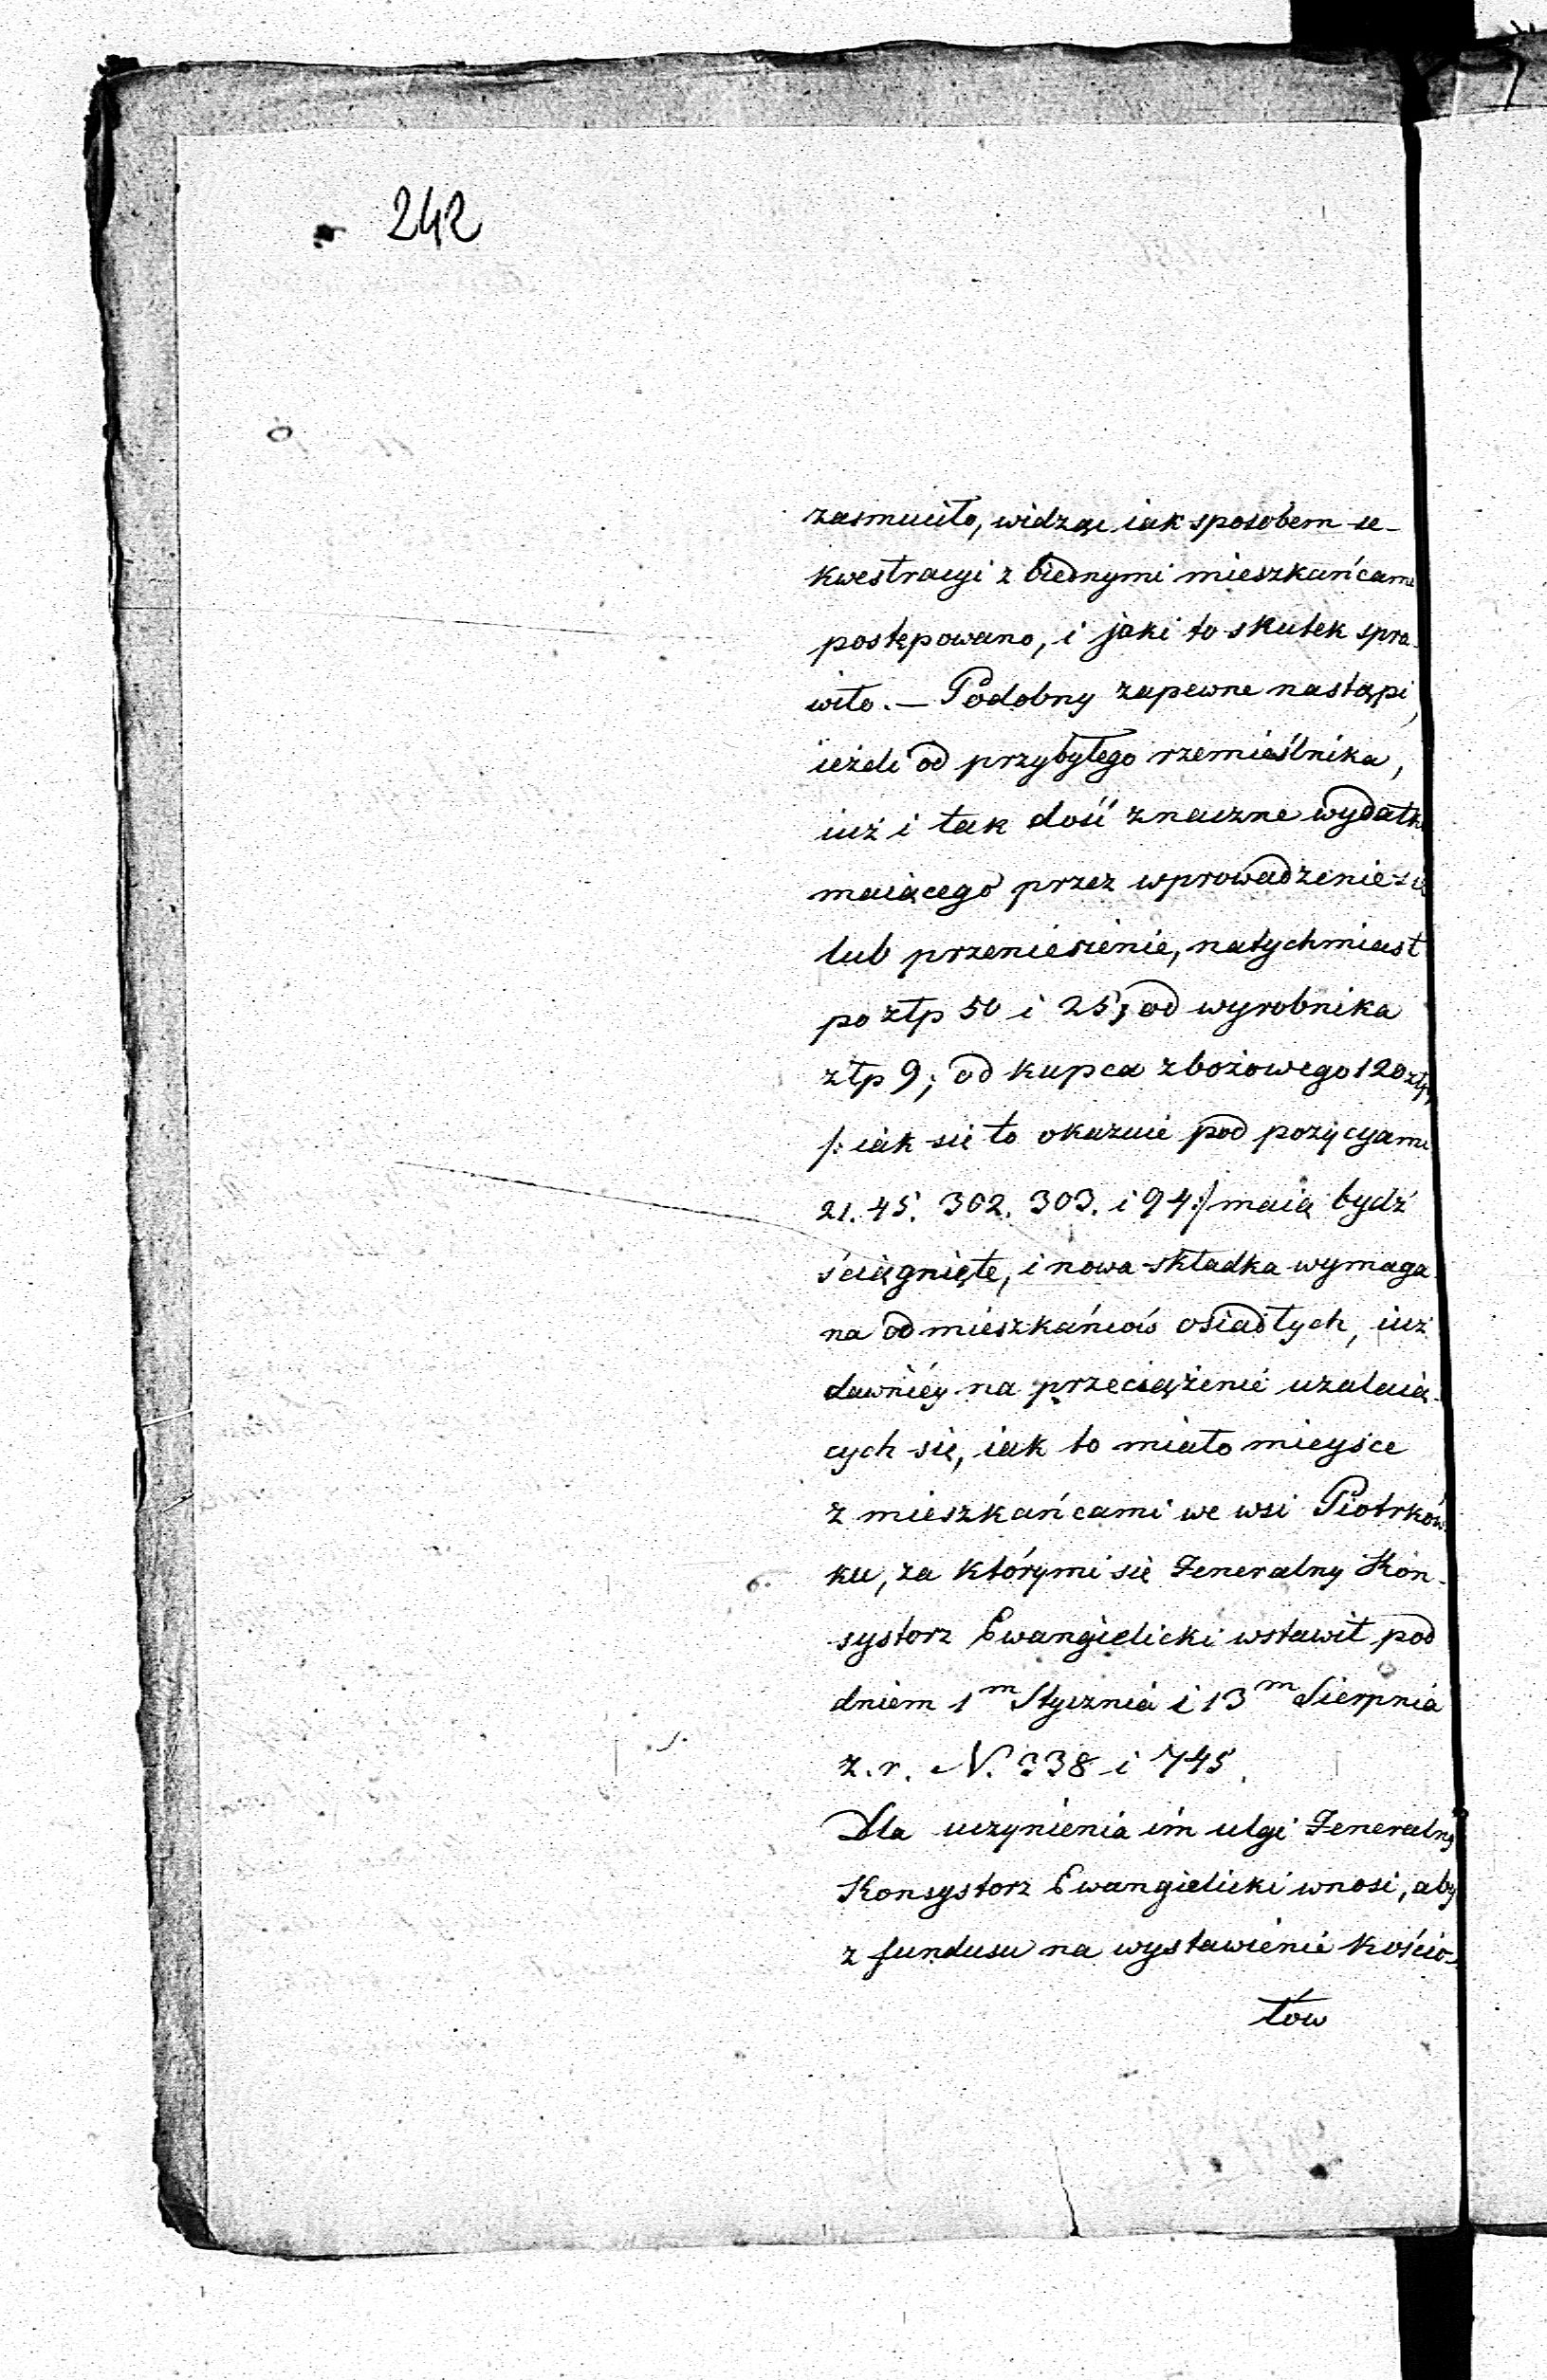 242
zasmuciło, widząc iak sposobem se-
kwestracyi z biednymi mieszkańcami
postępowano, i jaki to skutek spra-
wiło. — Podobny zapewne nastąpi,
ieżeli od przybyłego rzemieślnika,
iuż i tak dość znaczne wydatki
maiącego przez wprowadzenie się
lub przeniesienie, natychmiast
po złp 50 i 25, od wyrobnika
złp 9; od kupca zbożowego 120 złp,
/: iak się to okazuie pod pozycyami
21. 45. 302. 303. i 94 :/ maią bydź
ściągnięte, i nowa składka wymaga-
na od mieszkańców osiadłych, iuż
dawniéy na przeciążenié użalaią-
cych się, iak to miało mieysce
z mieszkańcami we wsi Piotrków-
ku, za którymi się Jeneralny Kon-
systorz Ewangielicki wstawił pod
dniem 1m Stycznia i 13m Sierpnia
z. r. N. 338 i 745.
Dla uczynienia im ulgi Jeneralny
Konsystorz Ewangielicki wnosi, aby
z fundusu na wystawienie kościo-
łów